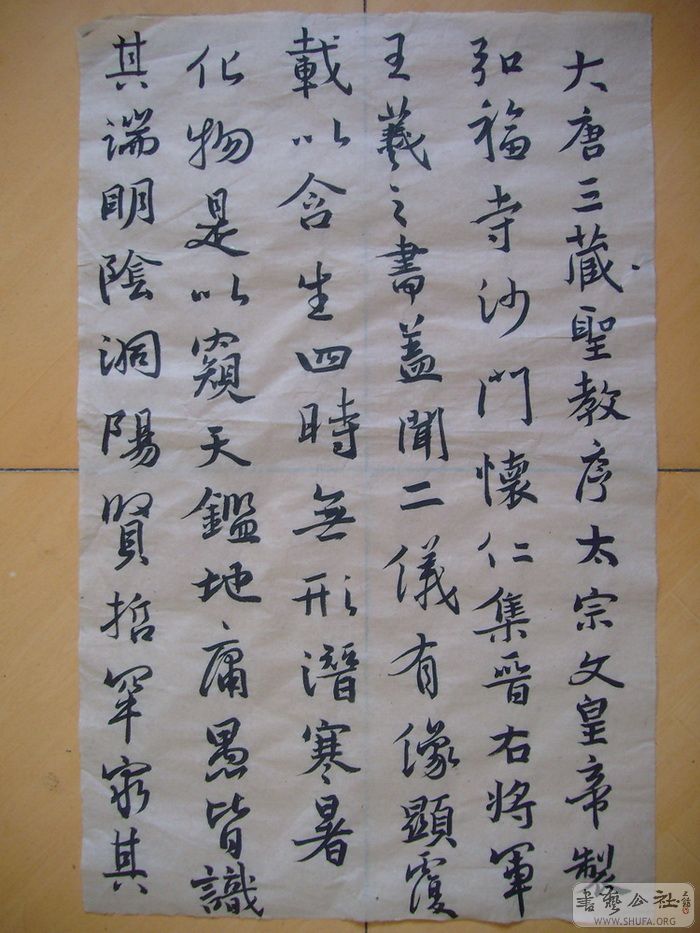 大唐三藏聖教序太宗文皇帝製
弘福寺沙門懷仁集晉右將軍
王羲之書蓋聞二儀有像顯覆
載以含生四時無形潛寒暑
化物是以窺天鑑地庸愚皆識
其端明陰洞陽賢哲罕窮其
書藝公社
WWW.SHUFA.ORG